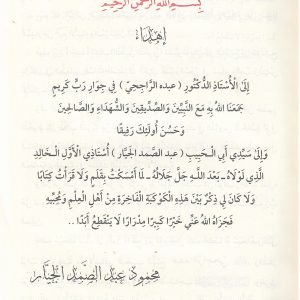 بسم الله الرحمن الرحيم
إهداء
إِلَى الْأُسْتَاذِ الدُّكْتُورِ ( عبده الرَّاجحِيِّ ) فِي جِوَارِ رَبٍّ كَرِيمٍ
جَمَعَنَا اللهُ بِهِ مَعَ النَّبِيِّينَ وَالصِّدِّيقِينَ وَالشُّهَدَاءِ وَالصَّالِحِينَ
وَحَسُنَ أُولَئِكَ رَفِيقًا
وَإِلَى سَيِّدِي أَبِي الْحَبِيبِ ( عبد الصَّمد الجيَّار ) أُسْتَاذِي الْأَوَّلِ الْخَالِدِ
الَّذِي لَوْلَاهُ ـ بَعْدَ اللهِ جَلَّ جَلَالُهُ ـ لَمَا أَمْسَكْتُ بِقَلَمٍ وَلَا قَرَأْتُ كِتَابًا
وَلَا كَانَ لِي ذِكْرٌ بَيْنَ هَذِهِ الْكَوْكَبَةِ الْفَاخِرَةِ مِنْ أَهْلِ الْعِلْمِ وَمُحِبِّيهِ
فَجَزَاهُ اللهُ عَنِّي خَيْرًا كَبِيرًا مِدْرَارًا لَا يَنْقَطِعُ أَبَدًا ..
محمود عبد الصمد الجيار